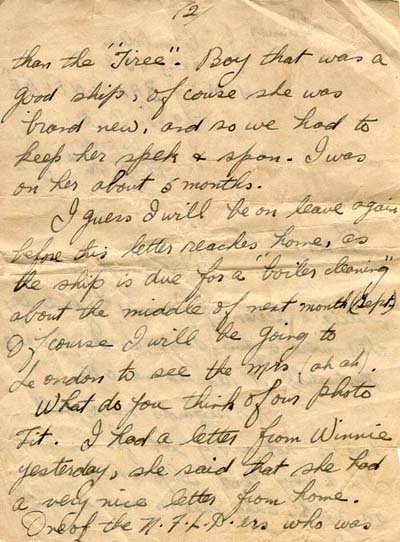 (2)
than the "Tiree". Boy that was a
good ship, of couse she was
brand new, and so we had to
keep her spek & span. I was
on her about 5 months.
I guess I will be on leave again
before this letter reaches home, as
the ship is due for a "boiler cleaning"
about the middle of next month (Sept.)
Of course I will be going to
London to see the Mrs (ah ah).
What do you think of our photo
Tit. I had a letter from Winnie
yesterday, she said that she had
a very nice letter from home.
One of the N.F.L.D.ers who was